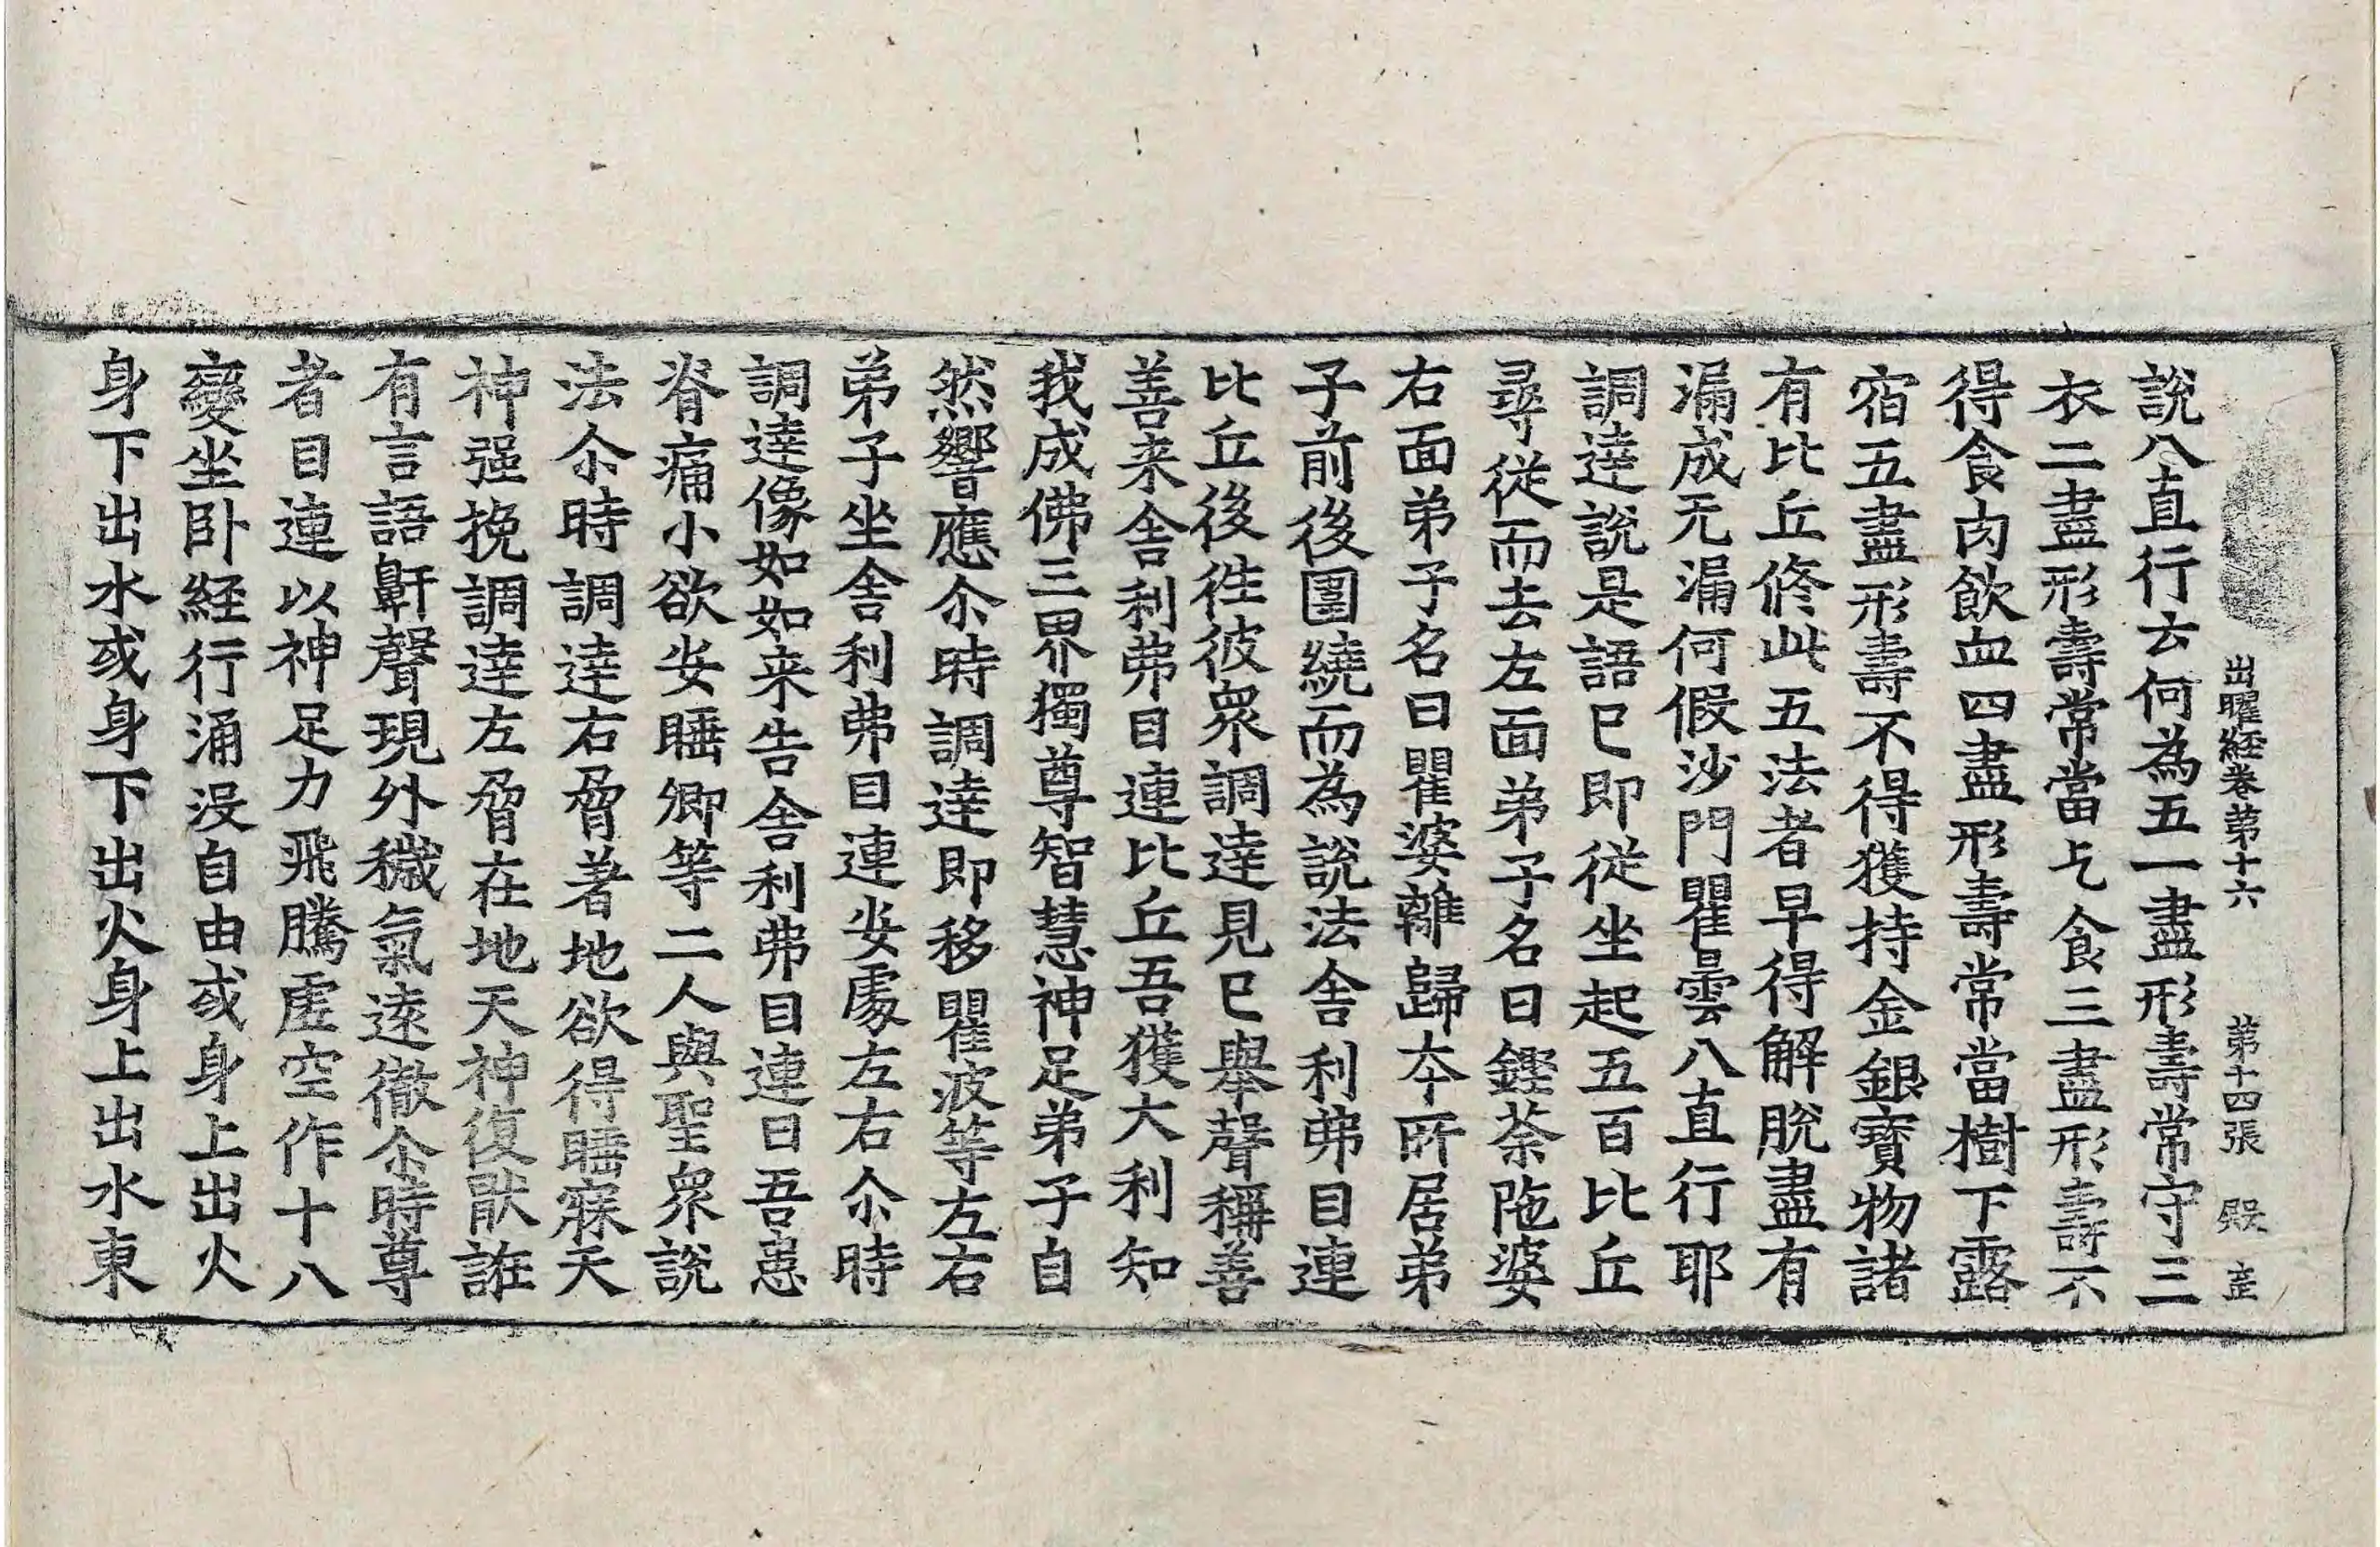 出曜経卷第十六　第十四張　殿
說八直行云何為五一盡形壽常守三
衣二盡形壽常當乞食三盡形壽不
得食肉飲血四盡形壽常當樹下露
宿五盡形壽不得獲持金銀寶物諸
有比丘修此五法者早得解脫盡有
漏成无漏何假沙門瞿曇八直行耶
調達說是語已即從坐起五百比丘
尋從而去左面弟子名曰鏗荼陁婆
右面弟子名曰瞿婆離歸夲所居弟
子前後圍繞而為說法舍利弗目連
比丘後徃彼衆調達見已舉聲稱善
善来舍利弗目連比丘吾獲大利知
我成佛三界獨尊智慧神足弟子自
然響應尒時調達即移瞿波等左右
弟子坐舍利弗目連安處左右尒時
調達像如如来告舍利弗目連曰吾患
脊痛小欲安睡卿等二人與聖衆說
法尒時調達右脅著地欲得睡寐天
神强挽調達左脅在地天神復猒誰
有言語鼾聲現外穢氣遠徹尒時尊
者目連以神足力飛騰虛空作十八
變坐卧経行涌没自由或身上出火
身下出水或身下出火身上出水東